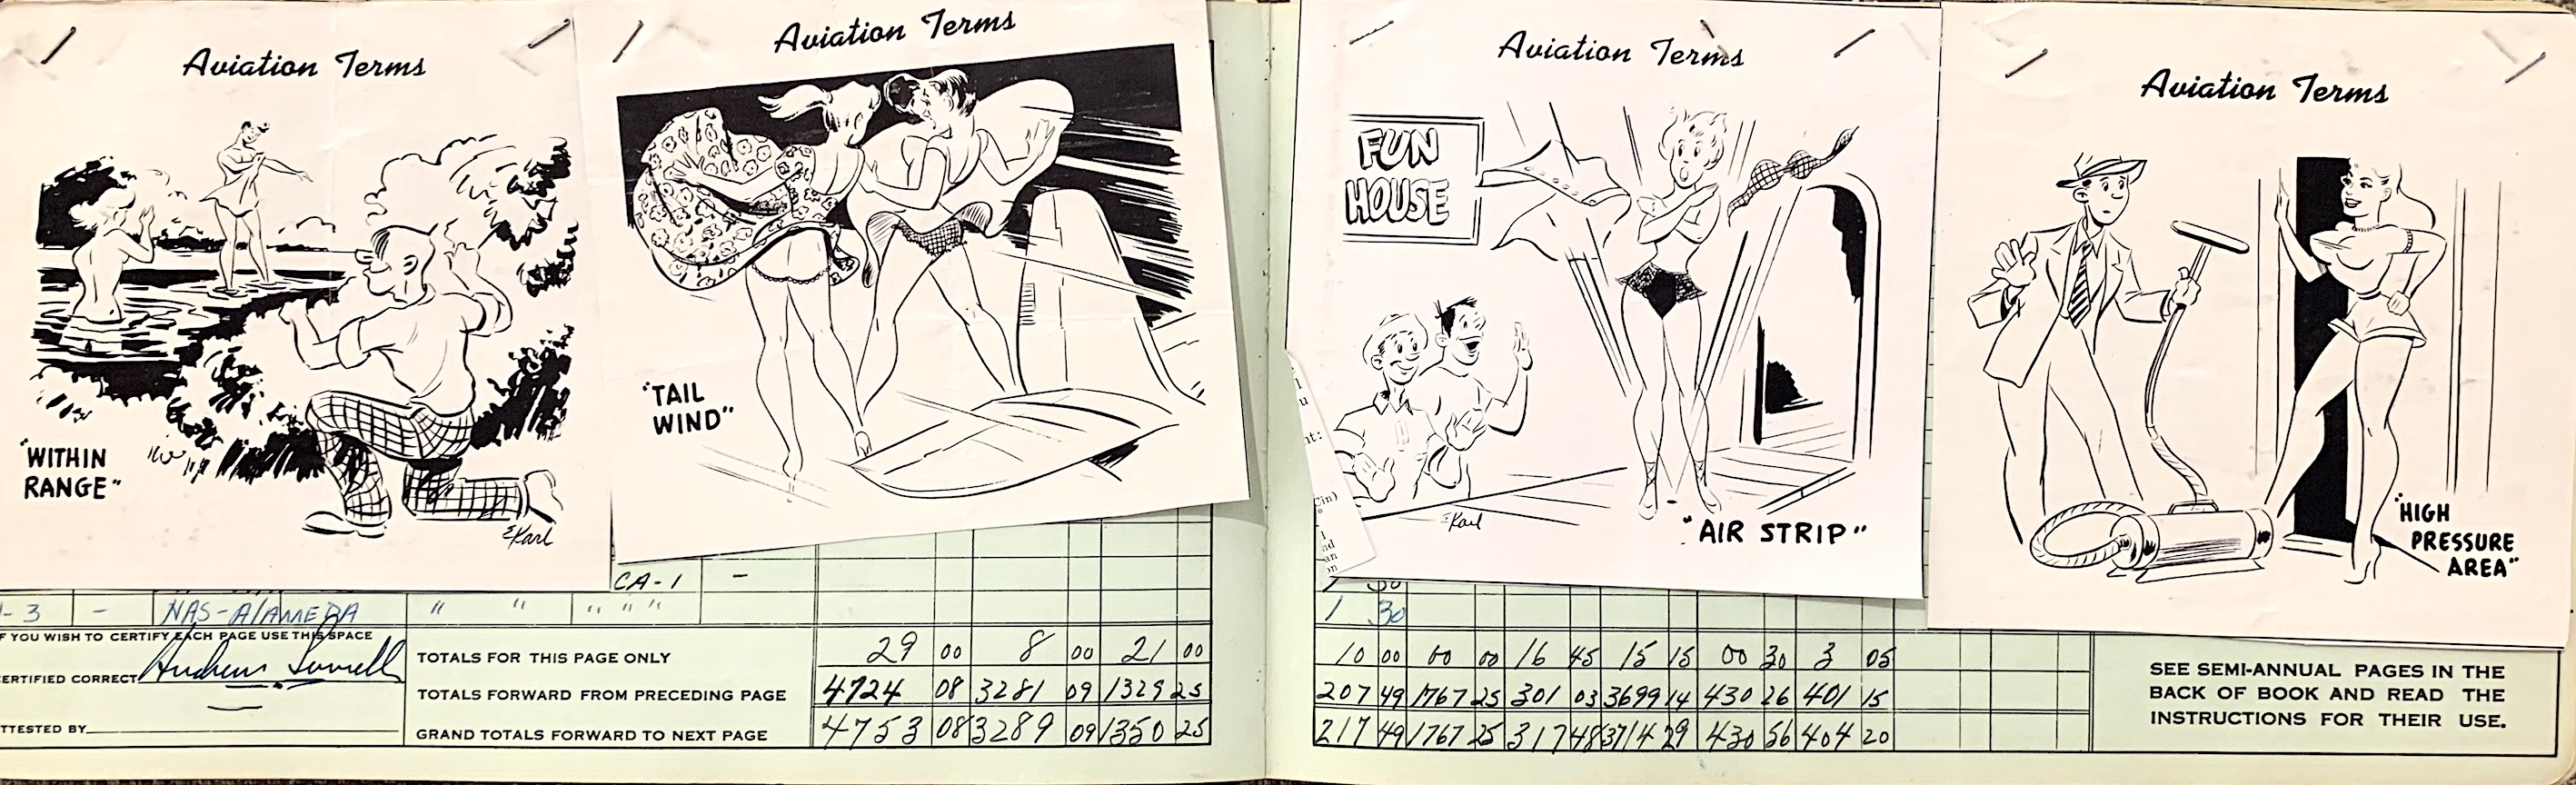 Aviation Terms
"WITHIN
RANGE"
EKarl
Aviation Terms
"TAIL
WIND"
CA-1 -
-3 - NAS-Alameda " " " " "
F YOU WISH TO CERTIFY EACH PAGE USE THIS SPACE
ERTIFIED CORRECT Andrew
TTESTED BY
TOTALS FOR THIS PAGE ONLY 29 00 8 00 21 00
TOTALS FORWARD FROM PRECEDING PAGE 4724 08 3281 09 1329 25
GRAND TOTALS FORWARD TO NEXT PAGE 4753 08 3289 09 1350 25
Aviation Terms
FUN
HOUSE
EKarl
"AIR STRIP"
Aviation Terms
"HIGH
PRESSURE
AREA"
1 30
10 00 00 00 16 45 15 15 00 30 3 05
207 49 1767 25 301 03 3699 14 430 26 401 15
217 49 1767 25 317 48 3714 29 430 56 404 20
SEE SEMI-ANNUAL PAGES IN THE
BACK OF BOOK AND READ THE
INSTRUCTIONS FOR THEIR USE.